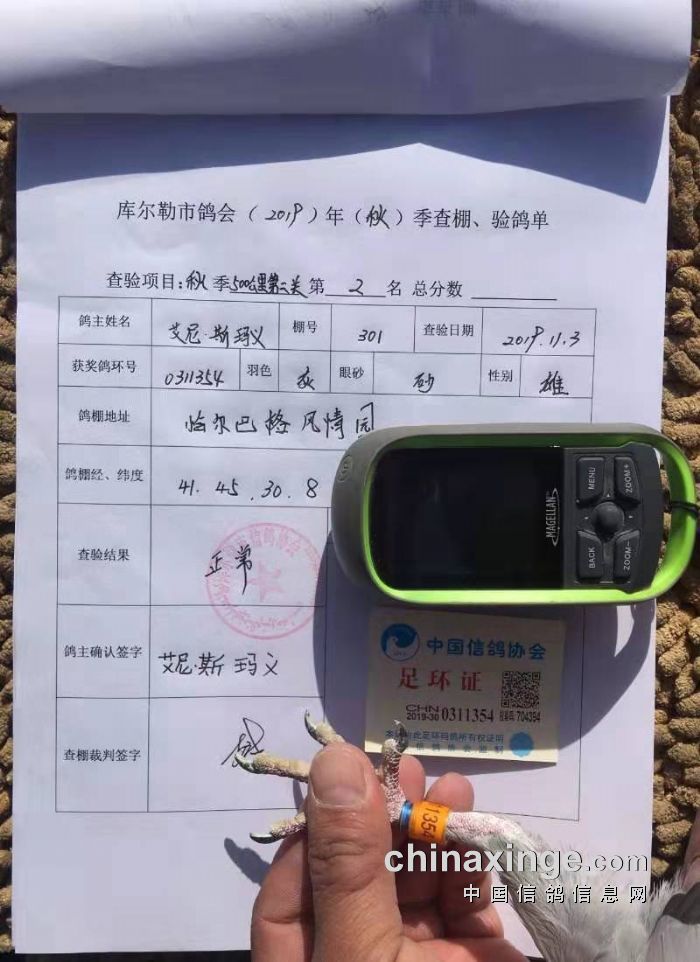 库尔勒市鸽会（2019）年（秋）季查棚、验鸽单
查验项目:秋季500公里第二关第 2 名 总分数
鸽主姓名 艾尼·斯玛义 棚号 301 查验日期 2019.11.3
获奖鸽环号 0311354 羽色 灰 眼砂 砂 性别 雄
鸽棚地址 恰尔巴格风情园
鸽棚经、纬度 41.45.30.8
查验结果 正常
鸽主确认签字 艾尼·斯玛义
查棚裁判签字
MAGELLAN
MENU
ZOOM+
BACK
ZOOM-
中国信鸽协会
足环证
CHN
2019-30 0311354 704394
本证为此足环码鸽所有权证明
信鸽协会监制
1354
chinaxinge.com
中国信鸽信息网